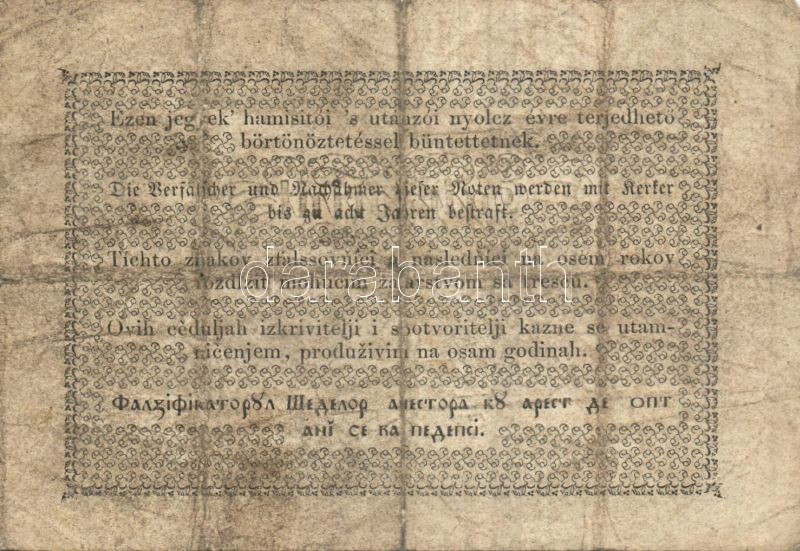 Ezen jegyek' hamisitói 's utánzói nyolcz évre terjedhető
börtönöztetéssel büntettetnek.
Die Verfälscher und Nachahmer dieser Noten werden mit Kerker
bis zu acht Jahren bestraft.
Tíchto znakov zfalssovníci a následníci na osém rokov
rozdlžit mohúcím žalárstvom sa trescú.
Ovih ceduljah izkrivitelji i spotvoritelji kazne se utam-
ničenjem, produživim na osam godinah.
Фалꙃіфікаторꙋл Шеделор ачестора кꙋ арест де опт
анї се ва педепсі.
darabanth